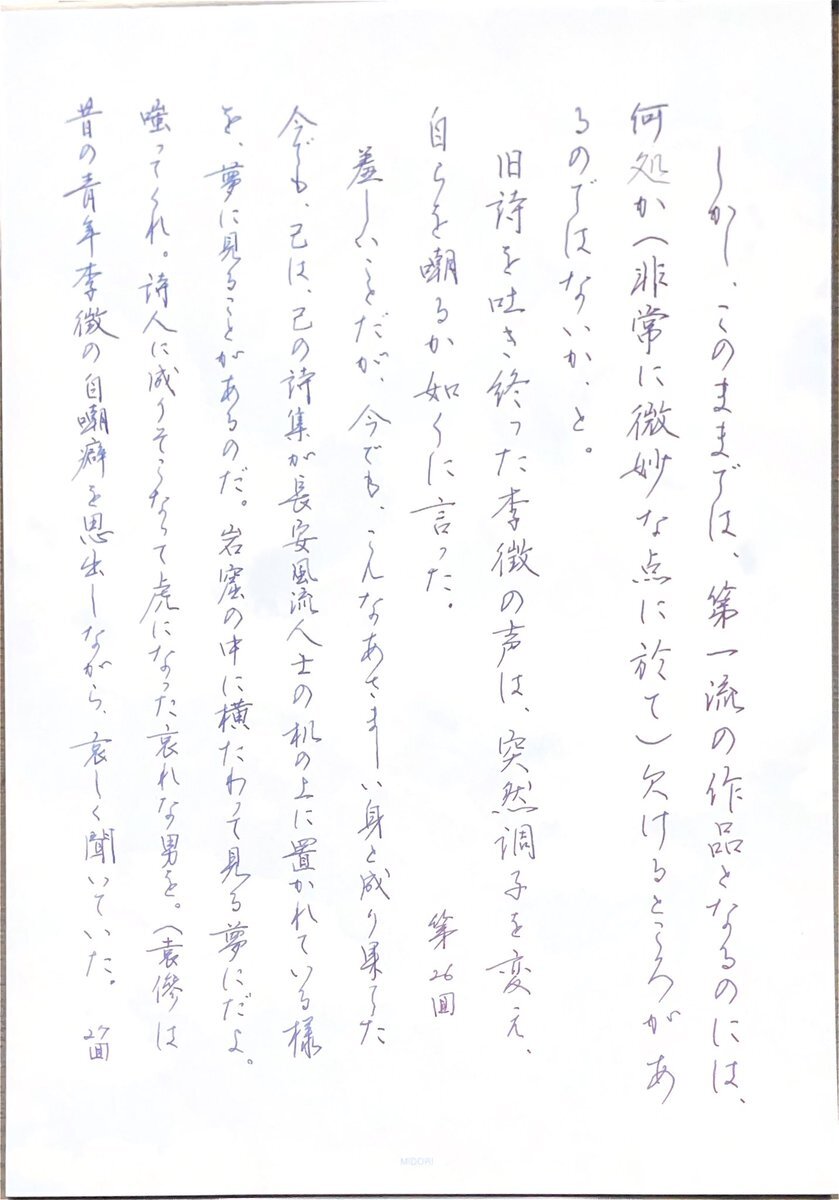 しかし、このままでは、第一流の作品となるのには、
何処か(非常に微妙な点に於て)欠けるところがあ
るのではないか、と。
旧詩を吐き終った李徴の声は、突然調子を変え、
自らを嘲るか如くに言った。
第26回
羞しいことだが、今でも、こんなあさましい身と成り果てた
今でも、己は、己の詩集が長安風流人士の机の上に置かれている様
を、夢に見ることがあるのだ。岩窟の中に横たわって見る夢にだよ。
嗤ってくれ。詩人に成りそこなって虎になった哀れな男を。(袁傪は
昔の青年李徴の自嘲癖を思出しながら、哀しく聞いていた。
27回
MIDORI